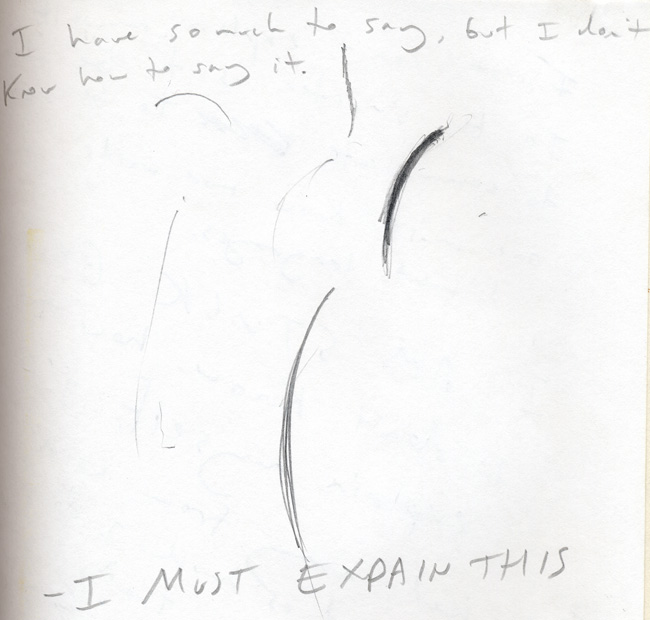 I have so much to say, but I don't
know how to say it.
- I MUST EXPAIN THIS